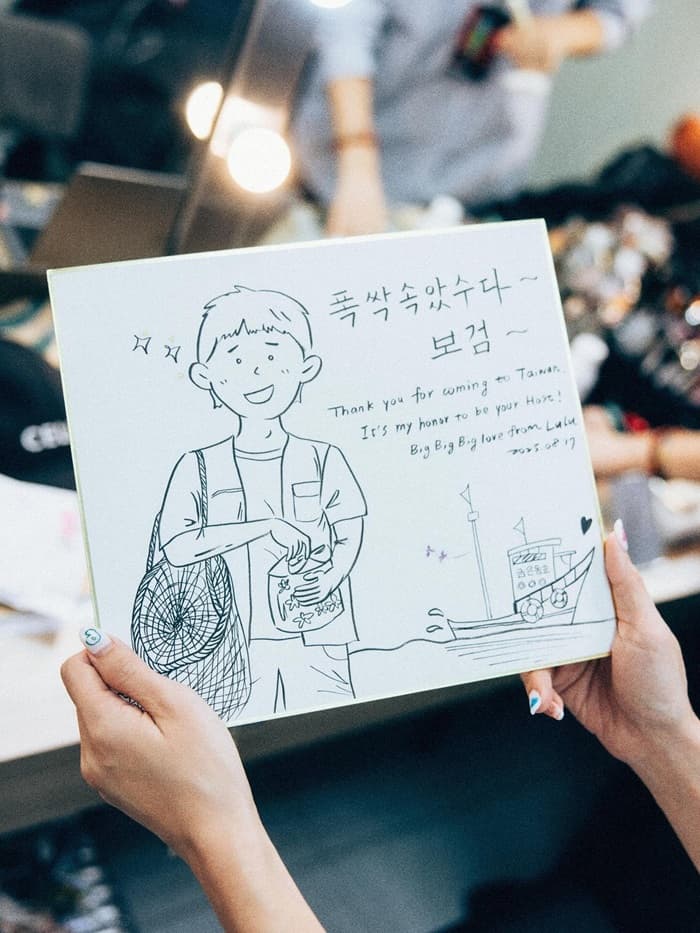 폭싹 속았수다~
보검~
Thank you for coming to Taiwan.
It's my honor to be your Host!
Big Big Big love from LuLu
2025.08.17